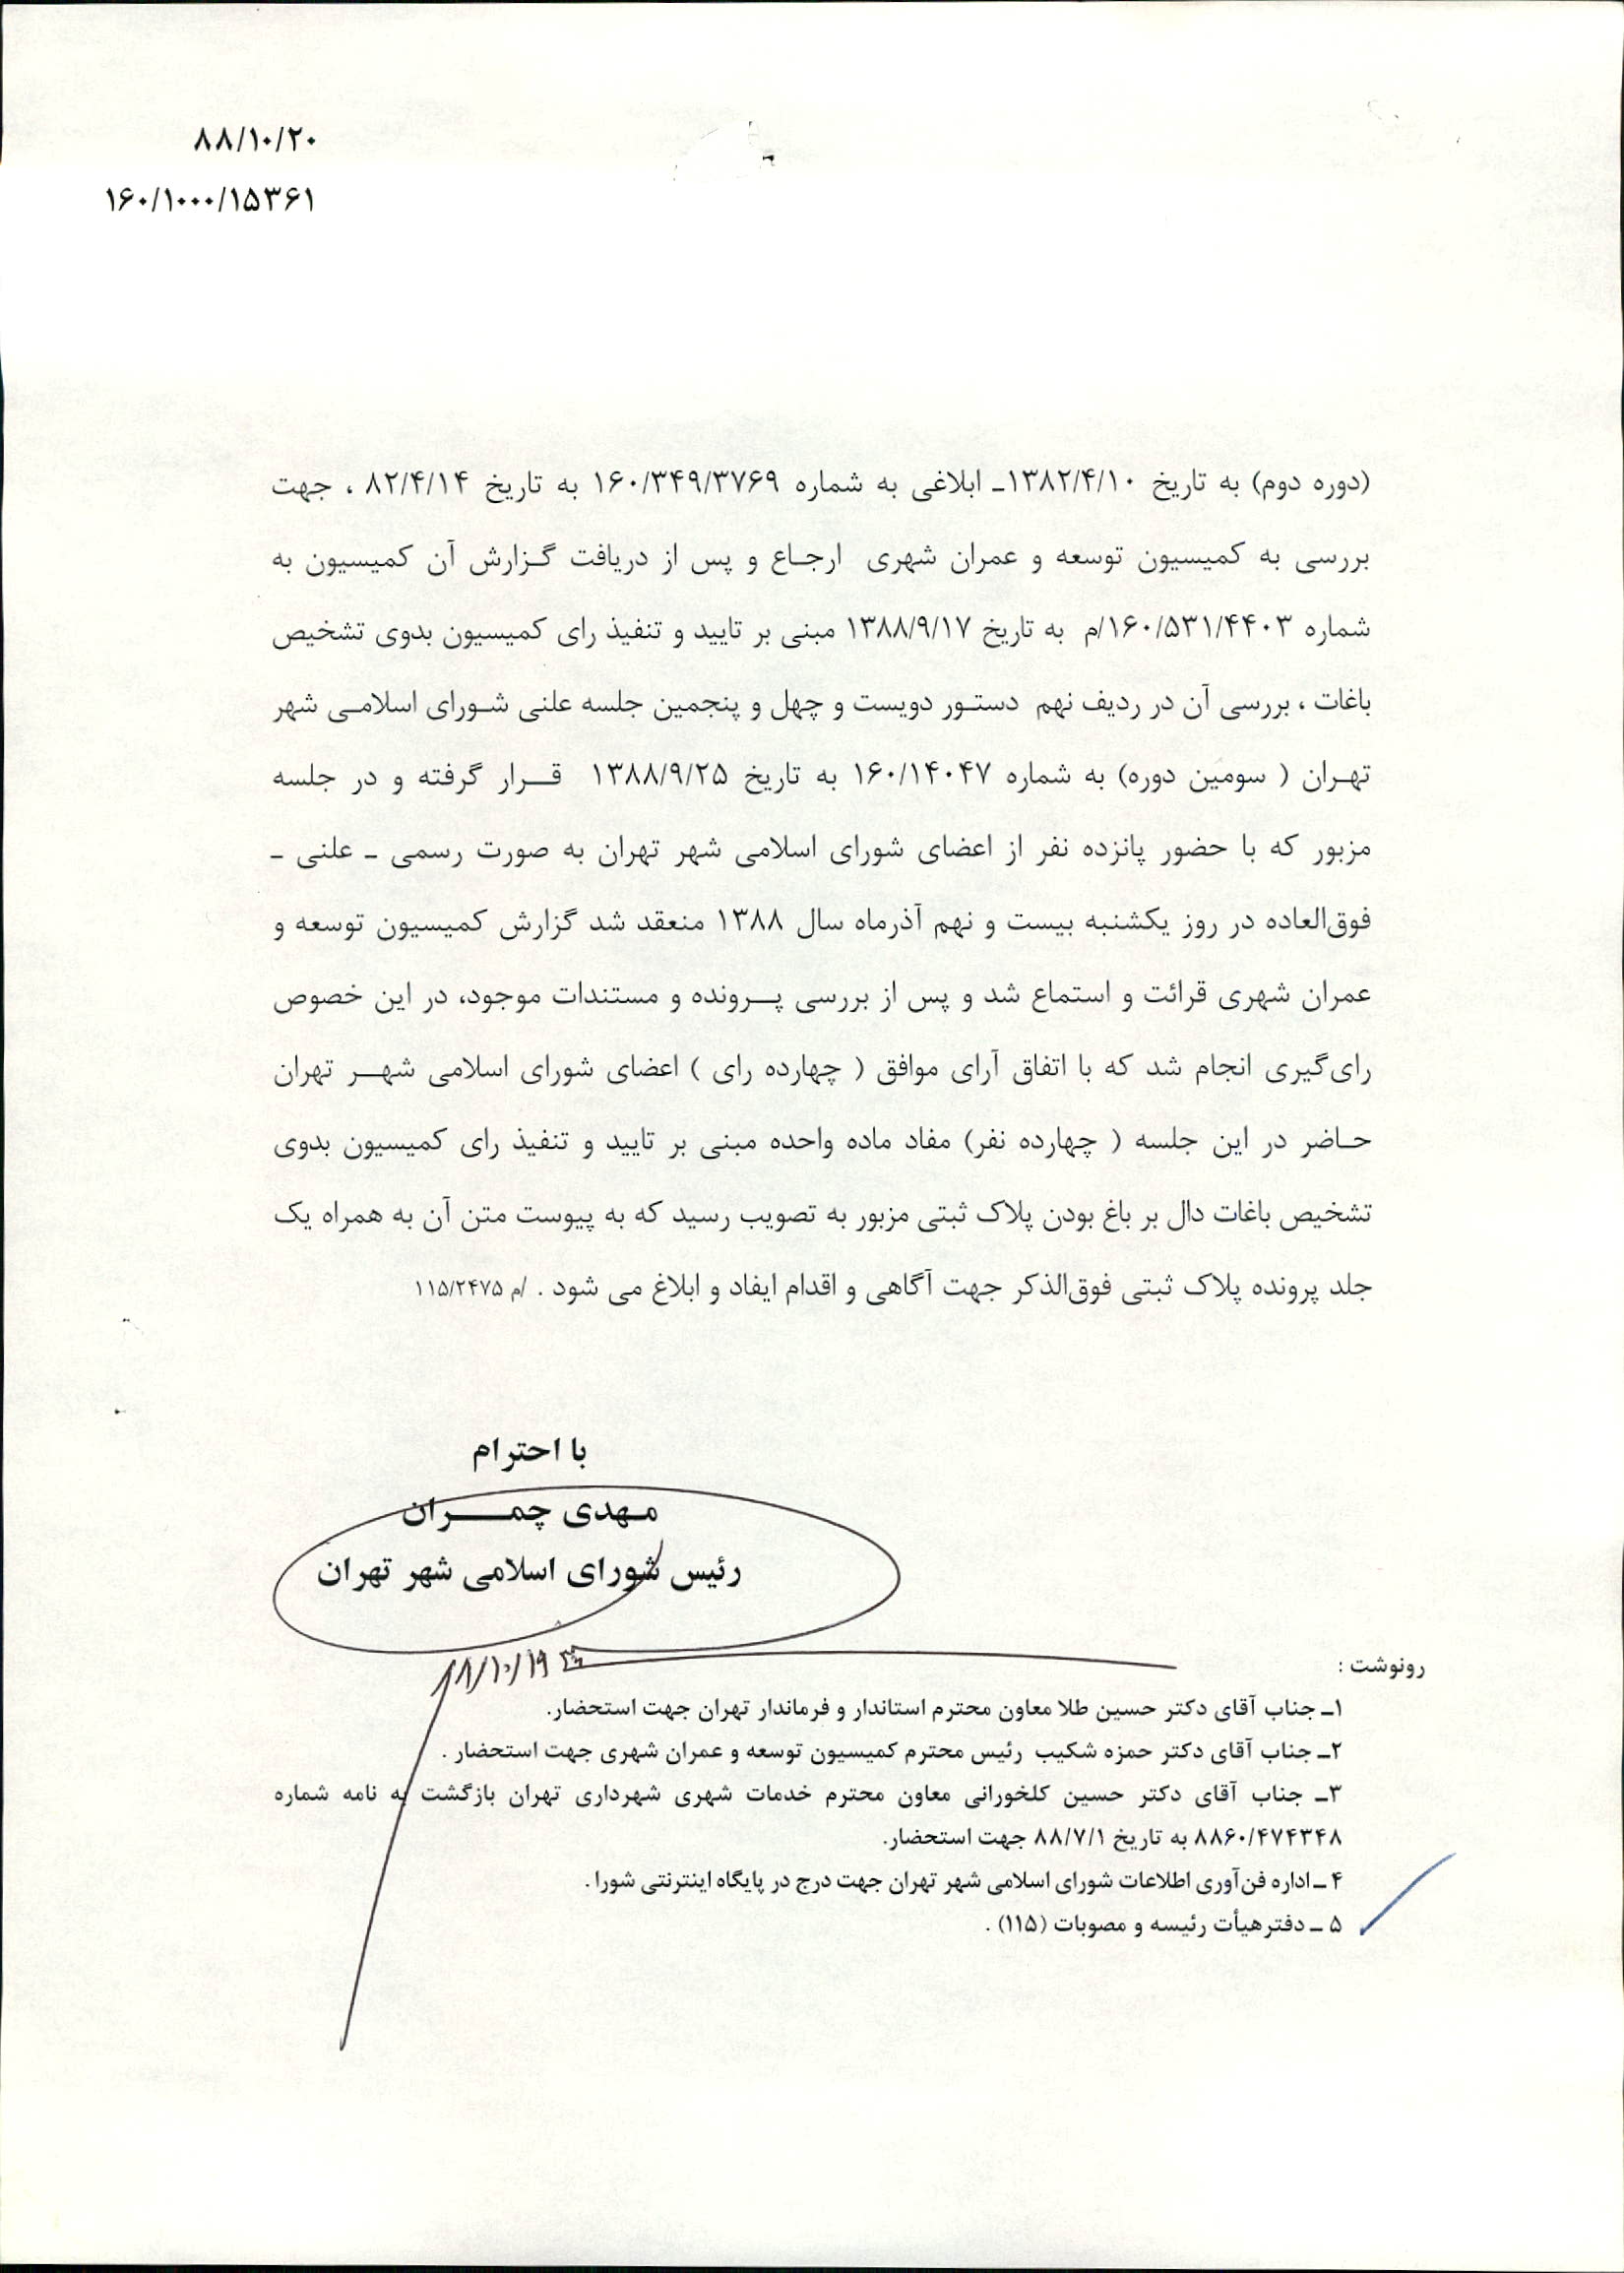 ۸۸/۱۰/۲۰
۱۶۰/۱۰۰۰/۱۵۳۶۱
(دوره دوم) به تاریخ ۱۳۸۲/۴/۱۰ـ ابلاغی به شماره ۱۶۰/۳۴۹/۳۷۶۹ به تاریخ ۸۲/۴/۱۴ ، جهت
بررسی به کمیسیون توسعه و عمران شهری ارجـاع و پس از دریافت گـزارش آن کمیسیون به
شماره ۱۶۰/۵۳۱/۴۴۰۳/م به تاریخ ۱۳۸۸/۹/۱۷ مبنی بر تایید و تنفیذ رای کمیسیون بدوی تشخیص
باغات ، بررسی آن در ردیف نهم دستـور دویست و چهل و پنجمین جلسه علنی شـورای اسلامـی شهر
تهـران ( سومین دوره) به شماره ۱۶۰/۱۴۰۴۷ به تاریخ ۱۳۸۸/۹/۲۵ قـــرار گرفته و در جلسه
مزبور که با حضور پانزده نفر از اعضای شورای اسلامی شهر تهران به صورت رسمی ـ علنی ـ
فوق‌العاده در روز یکشنبه بیست و نهم آذرماه سال ۱۳۸۸ منعقد شد گزارش کمیسیون توسعه و
عمران شهری قرائت و استماع شد و پس از بررسی پـــرونده و مستندات موجود، در این خصوص
رای‌گیری انجام شد که با اتفاق آرای موافق ( چهارده رای ) اعضای شورای اسلامی شهـــر تهران
حـاضر در این جلسه ( چهارده نفر) مفاد ماده واحده مبنی بر تایید و تنفیذ رای کمیسیون بدوی
تشخیص باغات دال بر باغ بودن پلاک ثبتی مزبور به تصویب رسید که به پیوست متن آن به همراه یک
جلد پرونده پلاک ثبتی فوق‌الذکر جهت آگاهی و اقدام ایفاد و ابلاغ می شود . /م ۱۱۵/۲۴۷۵
با احترام
مـهدی چمـــــران
رئیس شورای اسلامی شهر تهران
۸۸/۱۰/۱۹
رونوشت :
۱ـ جناب آقای دکتر حسین طلا معاون محترم استاندار و فرماندار تهران جهت استحضار.
۲ـ جناب آقای دکتر حمزه شکیب رئیس محترم کمیسیون توسعه و عمران شهری جهت استحضار .
۳ـ جناب آقای دکتر حسین کلخورانی معاون محترم خدمات شهری شهرداری تهران بازگشت به نامه شماره
۸۸۶۰/۴۷۴۳۴۸ به تاریخ ۸۸/۷/۱ جهت استحضار.
۴ ـ اداره فن‌آوری اطلاعات شورای اسلامی شهر تهران جهت درج در پایگاه اینترنتی شورا .
۵ ـ دفترهیأت رئیسه و مصوبات (۱۱۵) .